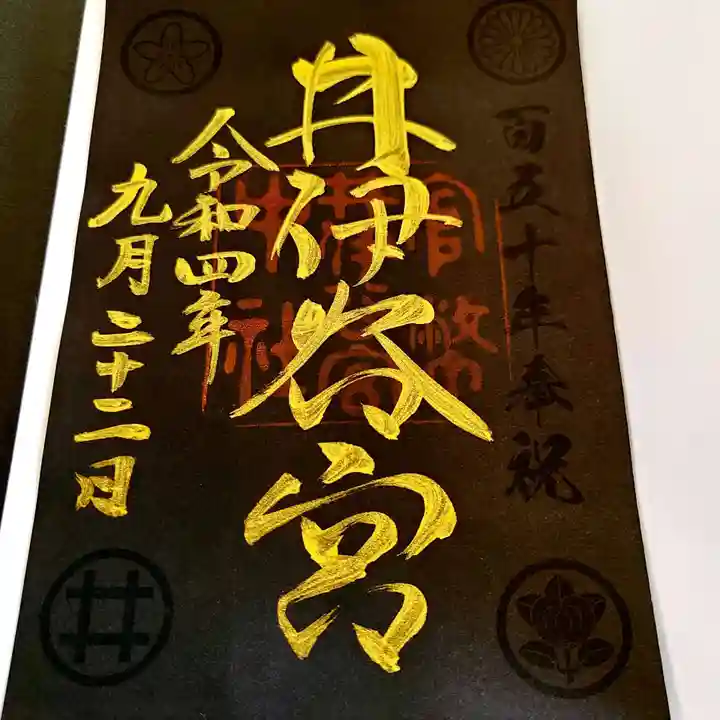 百五十年奉祝
井伊谷宮
官幣
中社
令和四年
九月二十二日